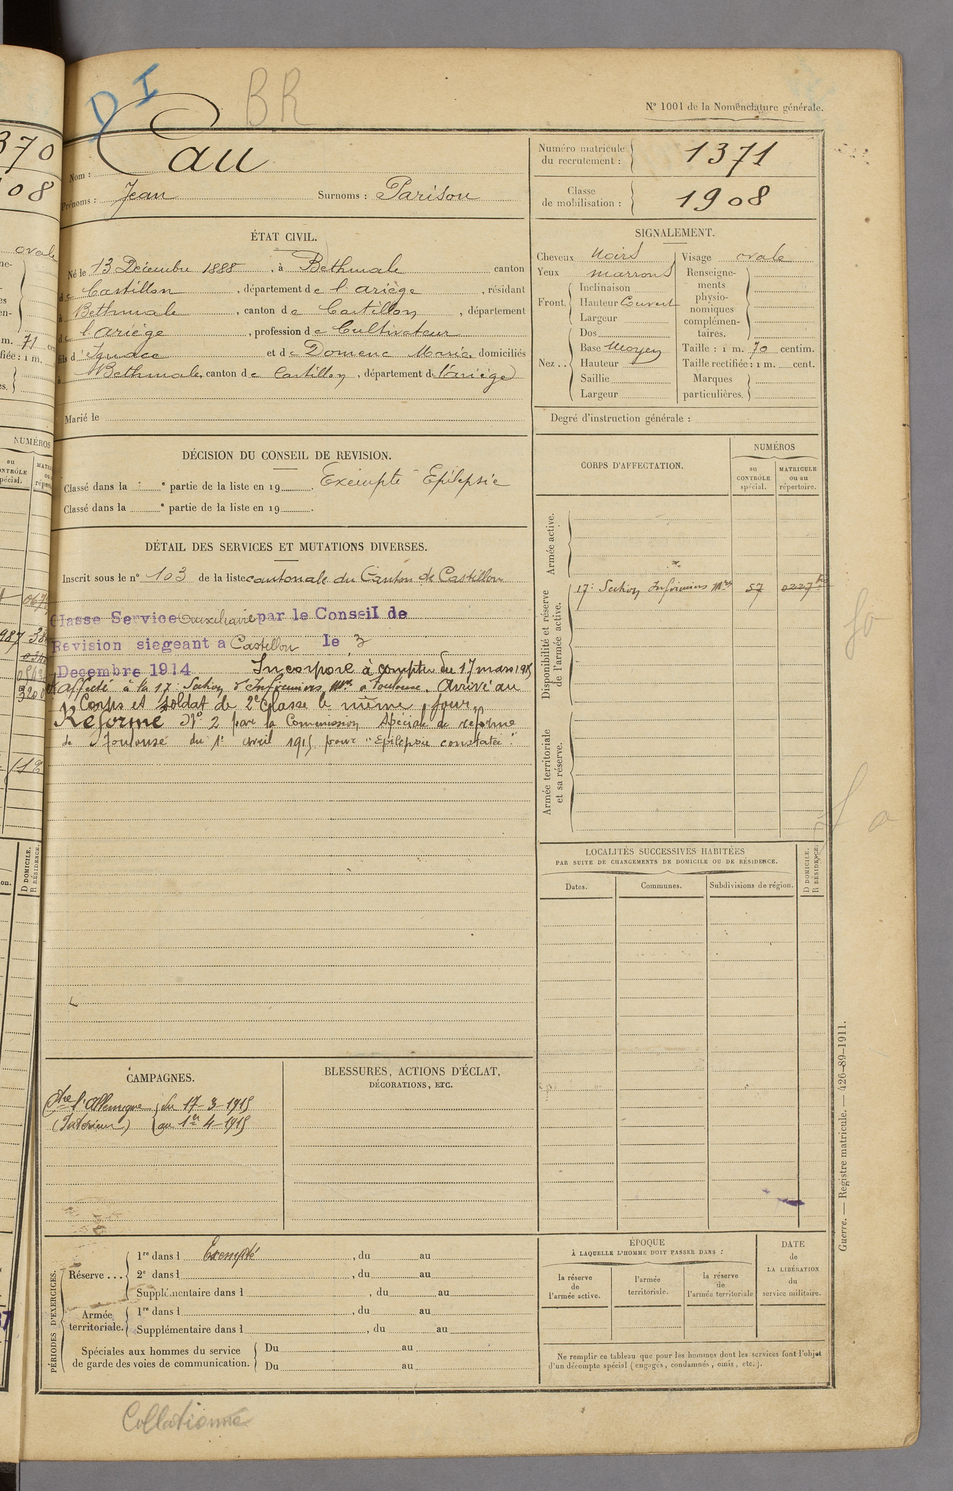 D I
BR
N° 1001 de la Nomenclature générale.
Nom : Cau
Prénoms : Jean Surnoms : Parisou
Numéro matricule du recrutement : 1371
Classe de mobilisation : 1908
ÉTAT CIVIL.
Né le 13 Décembre 1888, à Bethmale canton
de Castillon, département de l'Ariège, résidant
à Bethmale, canton de Castillon, département
de l'Ariège, profession de Cultivateur
fils d'Ignace et de Domenc Marie domiciliés
à Bethmale, canton de Castillon, département de l'Ariège
Marié le
SIGNALEMENT.
Cheveux Noirs
Yeux marrons
Front. Inclinaison
Hauteur Couvert
Largeur
Nez .. Dos
Base Moyen
Hauteur
Saillie
Largeur
Visage ovale
Renseignements physionomiques complémentaires.
Taille : 1 m. 70 centim.
Taille rectifiée : 1 m. cent.
Marques particulières.
Degré d'instruction générale :
DÉCISION DU CONSEIL DE REVISION.
Classé dans la e partie de la liste en 19 . Exempté Epilepsie
Classé dans la e partie de la liste en 19 .
DÉTAIL DES SERVICES ET MUTATIONS DIVERSES.
Inscrit sous le n° 103 de la liste cantonale du Canton de Castillon
Classe Service Auxiliaire par le Conseil de
Revision siegeant a Castillon le 3
Decembre 1914 Incorporé à compter du 17 mars 1915
affecté à la 17e Section d'Infirmiers Mres à Toulouse. Arrivé au
Corps et soldat de 2e Classe le même jour.
Réformé N° 2 par la Commission Spéciale de réforme
de Toulouse du 1er avril 1915 pour "Epilepsie constatée".
CORPS D'AFFECTATION.
NUMÉROS
au CONTRÔLE spécial.
MATRICULE ou au répertoire.
Armée active.
Disponibilité et réserve de l'armée active.
17e Section Infirmiers Mres 57
Armée territoriale et sa réserve.
LOCALITÉS SUCCESSIVES HABITÉES
PAR SUITE DE CHANGEMENTS DE DOMICILE OU DE RÉSIDENCE.
D DOMICILE.
R RÉSIDENCE.
Dates. Communes. Subdivisions de région.
CAMPAGNES.
Ctre l'Allemagne du 17-3-1915
(Intérieur) au 1er-4-1915
BLESSURES, ACTIONS D'ÉCLAT,
DÉCORATIONS, ETC.
PÉRIODES D'EXERCICES.
Réserve ... 1re dans l Exempté, du au
2e dans l , du au
Supplémentaire dans l , du au
Armée territoriale. 1re dans l , du au
Supplémentaire dans l , du au
Spéciales aux hommes du service de garde des voies de communication. Du au
Du au
ÉPOQUE
À LAQUELLE L'HOMME DOIT PASSER DANS :
la réserve de l'armée active.
l'armée territoriale.
la réserve de l'armée territoriale
DATE de LA LIBÉRATION du service militaire.
Ne remplir ce tableau que pour les hommes dont les services font l'objet
d'un décompte spécial (engagés, condamnés, omis, etc.).
Guerre. — Registre matricule. — 426-89-1911.
Collationné